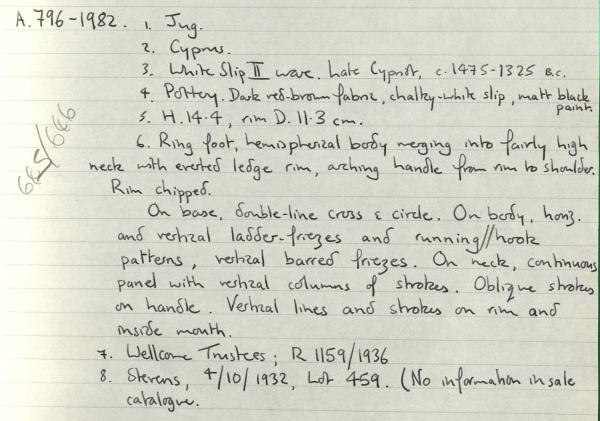 A.796-1982. 1. Jug.
2. Cyprus.
3. White Slip II ware. Late Cypriot, c. 1475-1325 B.C.
4. Pottery. Dark red-brown fabric, chalky-white slip, matt black
paint.
5. H. 14.4, rim D. 11.3 cm.
665/666
6. Ring foot, hemispherical body merging into fairly high
neck with everted ledge rim, arching handle from rim to shoulder.
Rim chipped.
On base, double-line cross & circle. On body, horiz.
and vertical ladder-friezes and running//hook
patterns, vertical barred friezes. On neck, continuous
panel with vertical columns of strokes. Oblique strokes
on handle. Vertical lines and strokes on rim and
inside mouth.
7. Wellcome Trustees; R 1159/1936
8. Stevens, 4/10/1932, Lot 459. (No information in sale
catalogue.